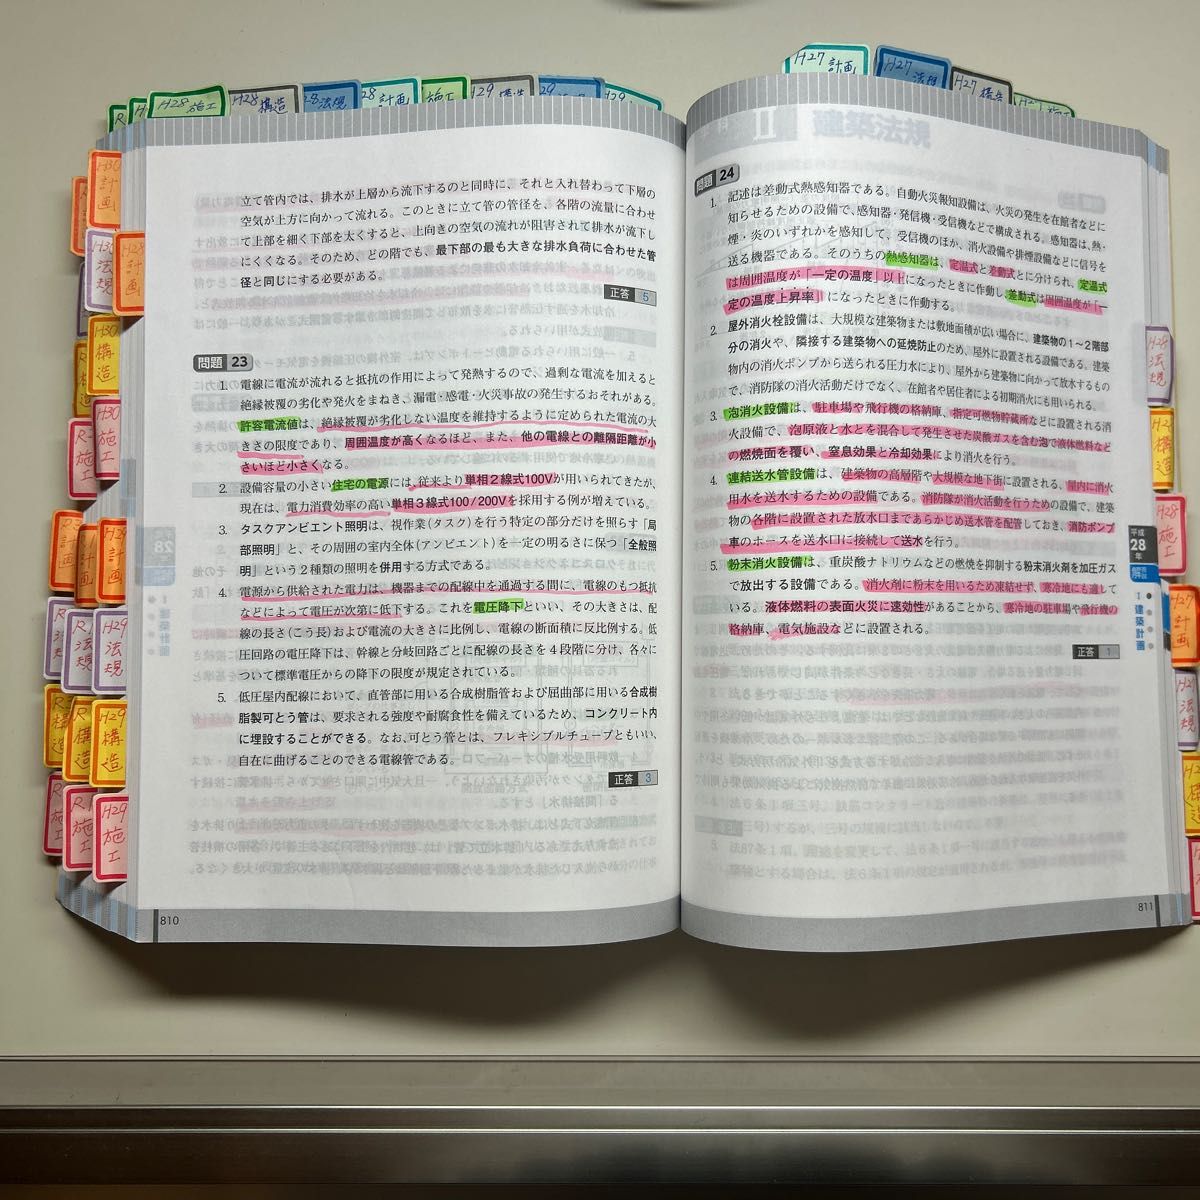 H28 施工
H28 構造
28 法規
28 計画
施工
H29 構造
29 法規
H29
H27 計画
H27 法規
H27 構造
H30 計画
H30 法規
H30 構造
H30 施工
H29 計画
H29 法規
H29 構造
H29 施工
立て管内では、排水が上層から流下するのと同時に、それと入れ替わって下層の
空気が上方に向かって流れる。このときに立て管の管径を、各階の流量に合わせ
て上部を細く下部を太くすると、上向きの空気の流れが阻害されて排水が流下し
にくくなる。そのため、どの階でも、最下部の最も大きな排水負荷に合わせた管
径と同じにする必要がある。
正答 5
問題 23
1. 電線に電流が流れると抵抗の作用によって発熱するので、過剰な電流を加えると
絶縁被覆の劣化や発火をまねき、漏電・感電・火災事故の発生するおそれがある。
許容電流値は、絶縁被覆が劣化しない温度を維持するように定められた電流の大
きさの限度であり、周囲温度が高くなるほど、また、他の電線との離隔距離が小
さいほど小さくなる。
2. 設備容量の小さい住宅の電源には、従来より単相2線式100Vが用いられてきたが、
現在は、電力消費効率の高い単相3線式100/200Vを採用する例が増えている。
3. タスクアンビエント照明は、視作業(タスク)を行う特定の部分だけを照らす「局
部照明」と、その周囲の室内全体(アンビエント)を一定の明るさに保つ「全般照
明」という2種類の照明を併用する方式である。
4. 電源から供給された電力は、機器までの配線中を通過する間に、電線のもつ抵抗
などによって電圧が次第に低下する。これを電圧降下といい、その大きさは、配
線の長さ(こう長)および電流の大きさに比例し、電線の断面積に反比例する。低
圧回路の電圧降下は、幹線と分岐回路ごとに配線の長さを4段階に分け、各々に
ついて標準電圧からの降下の限度が規定されている。
5. 低圧屋内配線において、直管部に用いる合成樹脂管および屈曲部に用いる合成樹
脂製可とう管は、要求される強度や耐腐食性を備えているため、コンクリート内
に埋設することができる。なお、可とう管とは、フレキシブルチューブともいい、
自在に曲げることのできる電線管である。
正答 3
810
問題 24
1. 記述は差動式熱感知器である。自動火災報知設備は、火災の発生を在館者などに
知らせるための設備で、感知器・発信機・受信機などで構成される。感知器は、熱・
煙・炎のいずれかを感知して、受信機のほか、消火設備や排煙設備などに信号を
送る機器である。そのうちの熱感知器は、定温式と差動式とに分けられ、定温式
は周囲温度が「一定の温度」以上になったときに作動し、差動式は周囲温度が「一
定の温度上昇率」になったときに作動する。
2. 屋外消火栓設備は、大規模な建築物または敷地面積が広い場合に、建築物の1~2階部
分の消火や、隣接する建築物への延焼防止のため、屋外に設置される設備である。建築
物内の消火ポンプから送られる圧力水により、屋外から建築物に向かって放水するもの
で、消防隊の消火活動だけでなく、在館者や居住者による初期消火にも用いられる。
3. 泡消火設備は、駐車場や飛行機の格納庫、指定可燃物貯蔵所などに設置される消
火設備で、泡原液と水とを混合して発生させた炭酸ガスを含む泡で液体燃料など
の燃焼面を覆い、窒息効果と冷却効果により消火を行う。
4. 連結送水管設備は、建築物の高層階や大規模な地下街に設置される、屋内に消火
用水を送水するための設備である。消防隊が消火活動を行うための設備で、建築
物の各階に設置された放水口まであらかじめ送水管を配管しておき、消防ポンプ
車のホースを送水口に接続して送水を行う。
5. 粉末消火設備は、重炭酸ナトリウムなどの燃焼を抑制する粉末消火剤を加圧ガス
で放出する設備である。消火剤に粉末を用いるため凍結せず、寒冷地にも適して
いる。液体燃料の表面火災に速効性があることから、寒冷地の駐車場や飛行機の
格納庫、電気施設などに設置される。
正答 1
平成
28
年
解説
I
建築計画
811
H29 法規
H28 構造
H28 施工
H27 計画
H27 法規